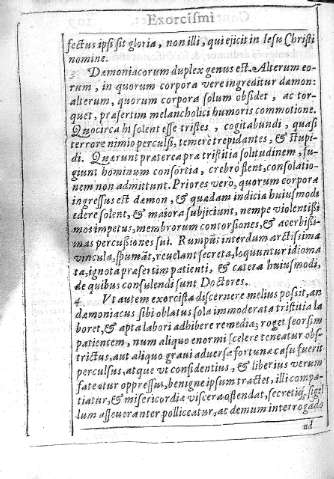 Exorcismi
fectus ipsi sit gloria, non illi, qui ejicit in Iesu Christi
nomine.
3. Dæmoniacorum duplex genus est. Alterum eo-
rum, in quorum corpora verè ingreditur dæmon:
alterum, quorum corpora solum obsidet, ac tor-
quet, præsertim melancholici humoris commotione.
Quocirca hi solent esse tristes, cogitabundi, quasi
terrore nimio perculsi, temerè trepidantes, & stupi-
di. Quærunt præterea præ tristitia solitudinem, fu-
giunt hominum consortia, crebrò flent, consolatio-
nem non admittunt. Priores verò, quorum corpora
ingressus est dæmon, & quædam indicia huiusmodi
edere solent, & maiora subjiciunt, nempe violentissi
mos impetus, membrorum contorsiones, & acerbissi-
mas percussiones sui. Rumpūt interdum arctissima
vincula, spumāt, revelant secreta, loquuntur idioma
ta, ignota præsertim patienti, & cætera huiusmodi,
de quibus consulendi sunt Doctores.
4. Vt autem exorcista discernere melius possit, an
dæmoniacus sibi oblatus sola immoderata tristitia la
boret, & apta labori adhibere remedia; roget seorsim
patientem, num aliquo enormi scelere teneatur obs-
trictus, aut aliquo gravi adversæ fortunæ casu fuerit
perculsus, atque vt confidentius, & liberius verum
fateatur oppressus, benignè ipsum tractet, illi compa-
tiatur, & misericordiæ viscera ostendat, secretiq; sigil
lum asseveranter polliceatur, ac demum interrogado
ad